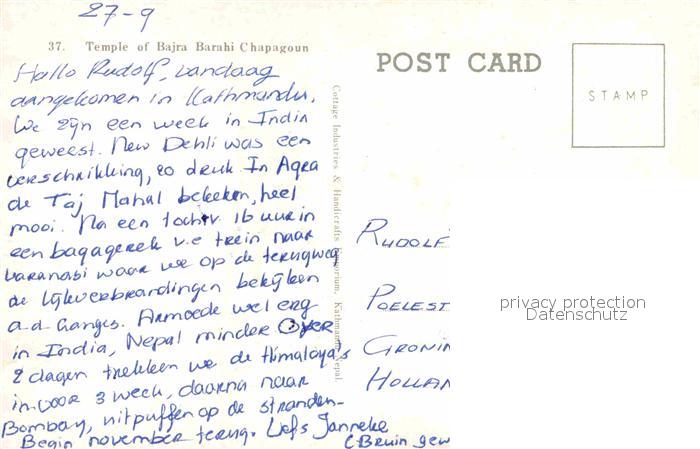 27-9
37. Temple of Bajra Barahi Chapagoun
Hallo Rudolf, vandaag
aangekomen in Kathmandu.
We zijn een week in India
geweest. New Dehli was een
verschrikking, zo druk In Agra
de Taj Mahal bekeken, heel
mooi. Na een tocht v 16 uur in
een bagagerek v.e trein naar
Varanasi waar we op de terugweg
de lijkverbrandingen bekijken
a.d. Ganges. Armoede wel erg
in India, Nepal minder Over
2 dagen trekken we de Himalaya's
in voor 3 week, daarna naar
Bombay, uitpuffen op de stranden.
Begin november terug. Liefs Janneke
(Bruin gew
Cottage Industries & Handicrafts Emporium, Kathmandu, Nepal.
POST CARD
STAMP
RUDOLF
POELEST
GRONIN
HOLLAN
privacy protection
Datenschutz